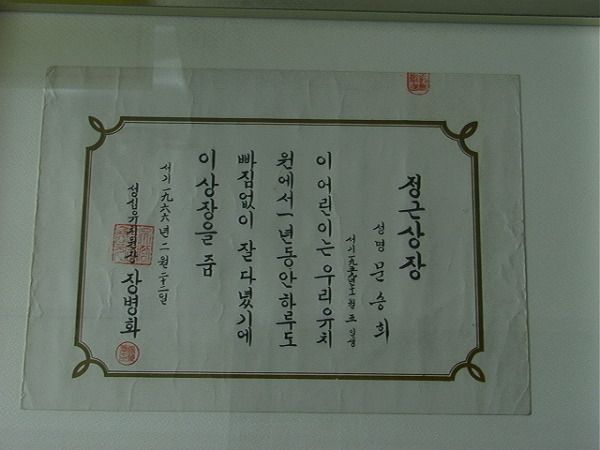 정근상장
성명 문승희
서기 一九五九년 월 五일생
이 어린이는 우리 유치
원에서 一년동안 하루도
빠짐없이 잘 다녔기에
이 상장을 줌
서기 一九六六년 二월 일
성심유치원장 장병화